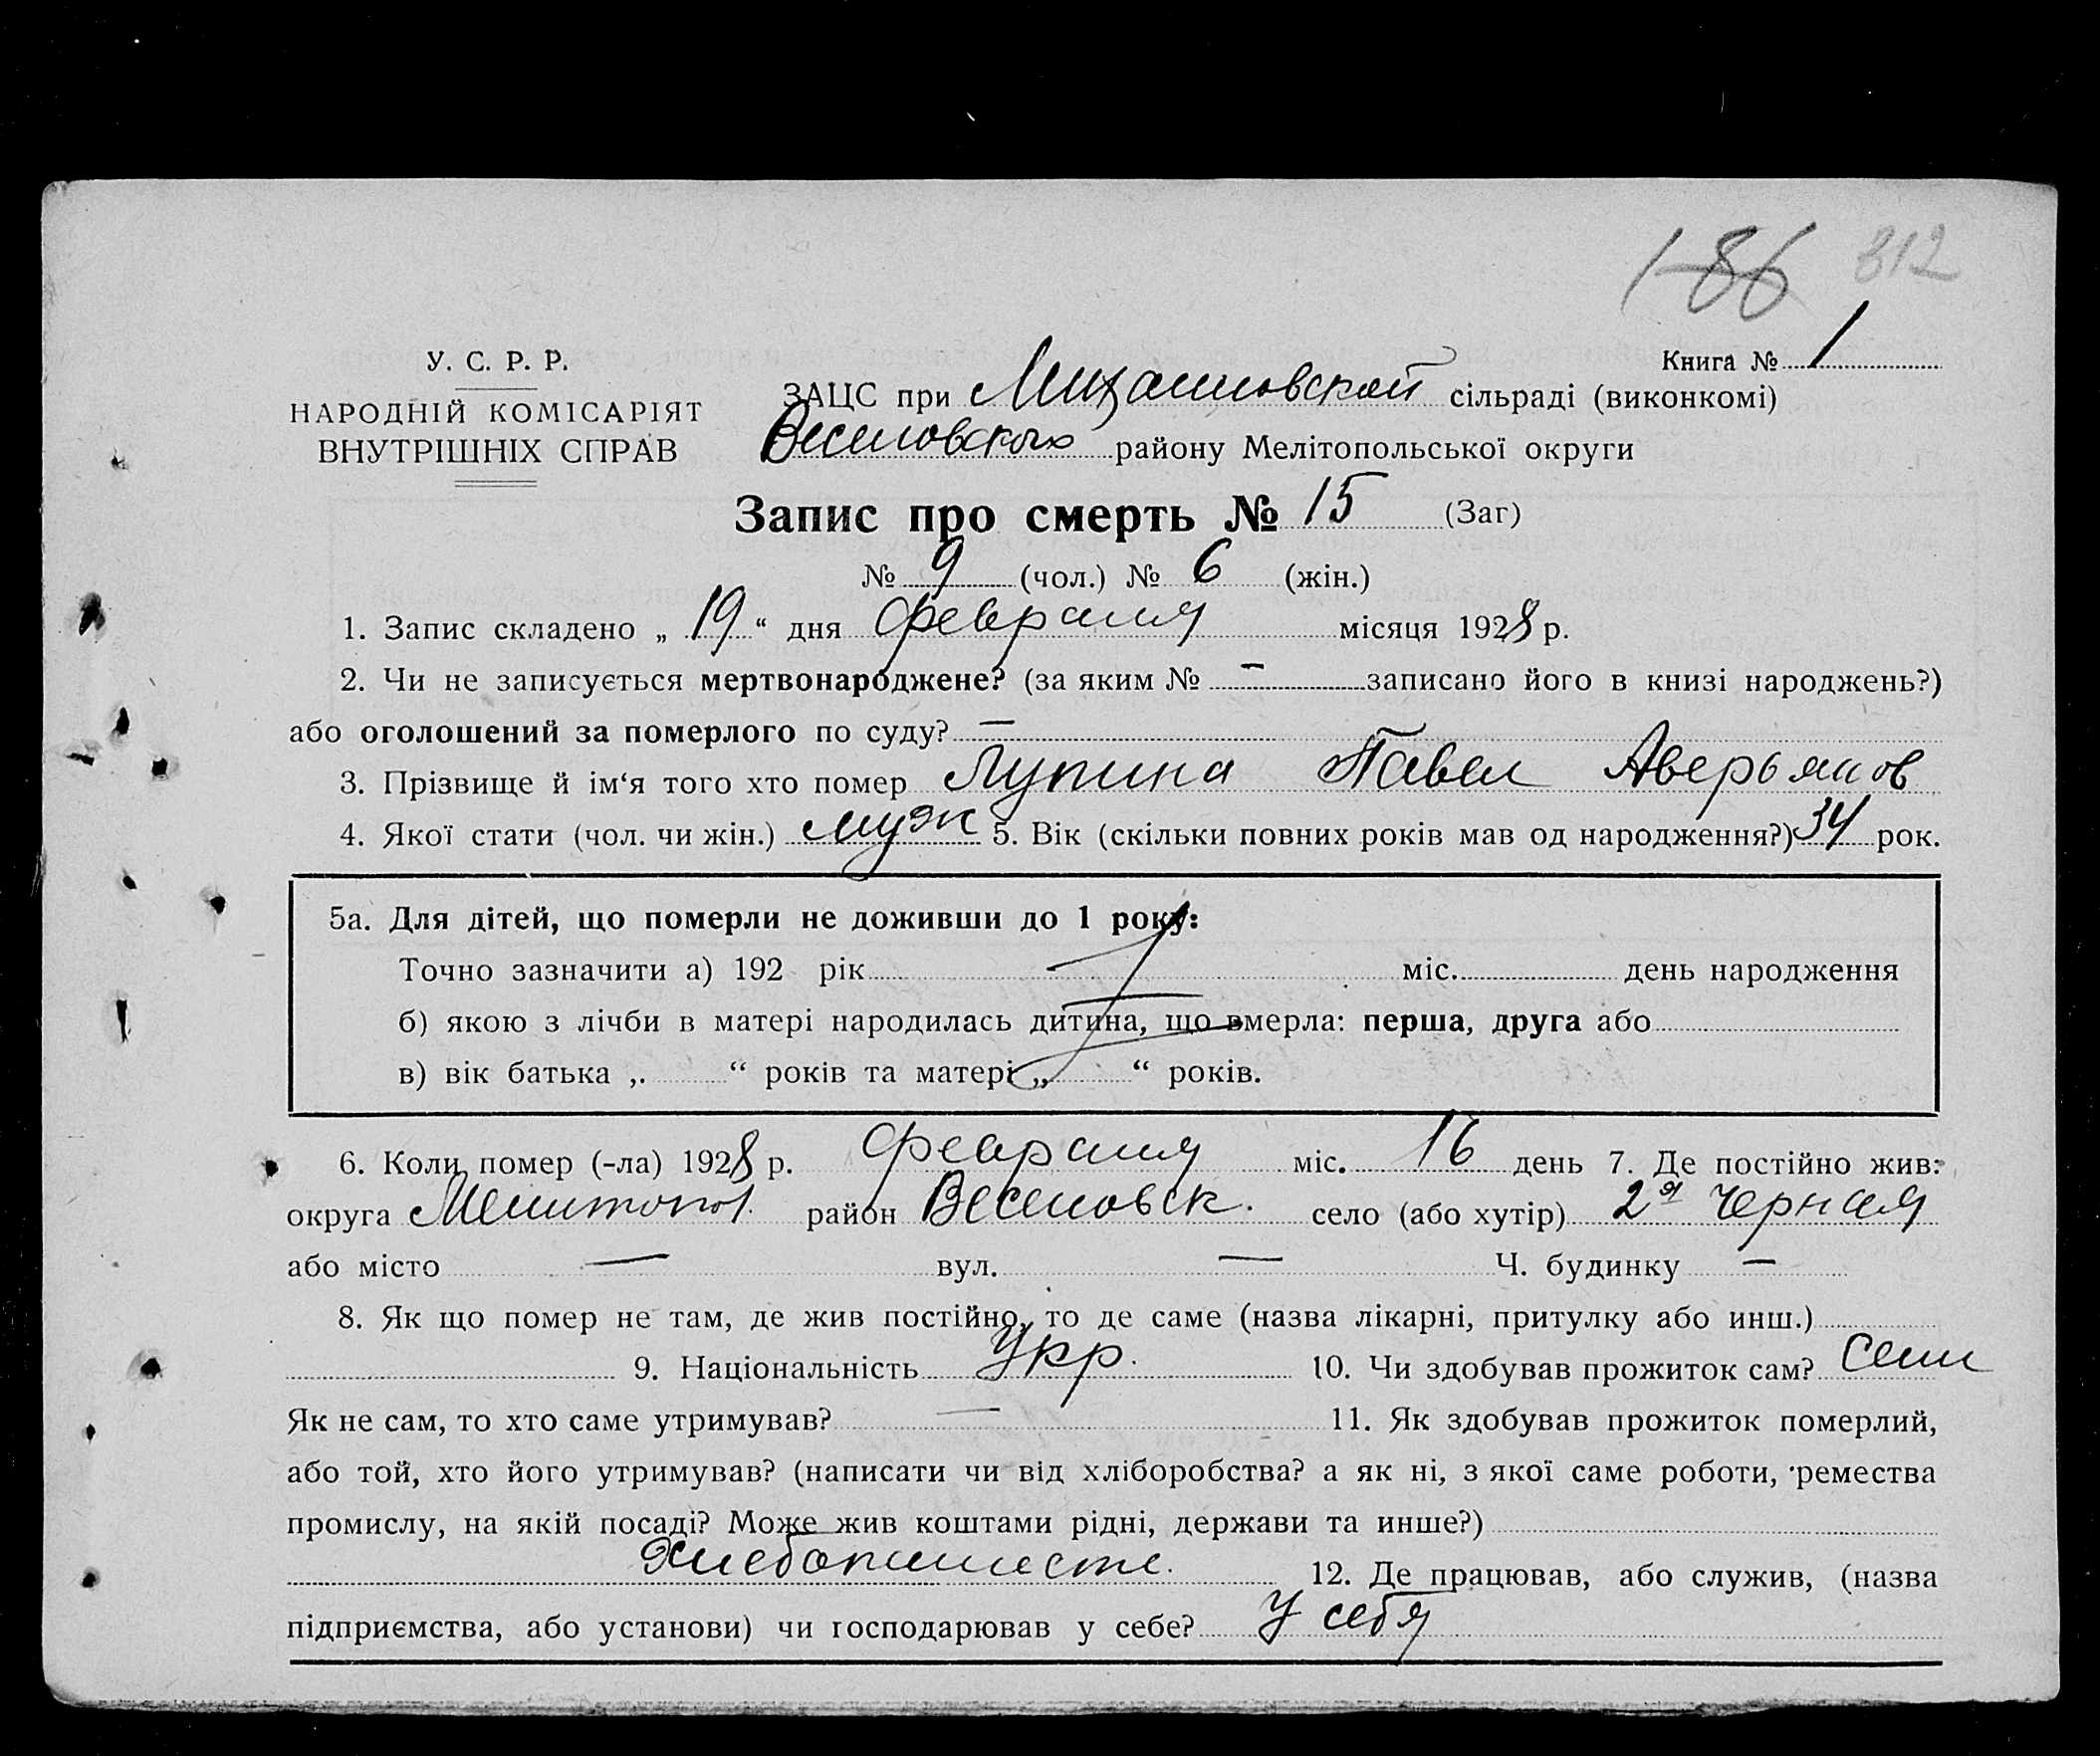 1-86 312
Книга № 1
У. С. Р. Р.
НАРОДНІЙ КОМІСАРІЯТ
ВНУТРІШНІХ СПРАВ
ЗАЦС при сільраді (виконкомі)
Веселовского району Мелітопольської округи
Запис про смерть № 15 (Заг)
№ 9 (чол.) № 6 (жін.)
1. Запис складено „ 19 “ дня февраля місяця 1928 р.
2. Чи не записується мертвонароджене? (за яким № — записано його в книзі народжень?)
або оголошений за померлого по суду? —
3. Прізвище й ім‘я того хто помер Лупина Павел Аверьянов
4. Якої стати (чол. чи жін.) муж 5. Вік (скільки повних років мав од народження?) 34 рок.
5а. Для дітей, що померли не доживши до 1 року:
Точно зазначити а) 192 рік міс. день народження
б) якою з лічби в матері народилась дитина, що вмерла: перша, друга або
в) вік батька „ “ років та матері „ “ років.
6. Коли помер (-ла) 1928 р. февраля міс. 16 день 7. Де постійно жив:
округа Мелитопол. район Веселовск. село (або хутір) 2я Черная
або місто — вул. — Ч. будинку —
8. Як що помер не там, де жив постійно, то де саме (назва лікарні, притулку або инш.)
9. Національність Укр. 10. Чи здобував прожиток сам? Сам
Як не сам, то хто саме утримував? — 11. Як здобував прожиток померлий,
або той, хто його утримував? (написати чи від хліборобства? а як ні, з якої саме роботи, ремества
промислу, на якій посаді? Може жив коштами рідні, держави та инше?)
Хлебопашеств. 12. Де працював, або служив, (назва
підприємства, або установи) чи господарював у себе? У себя